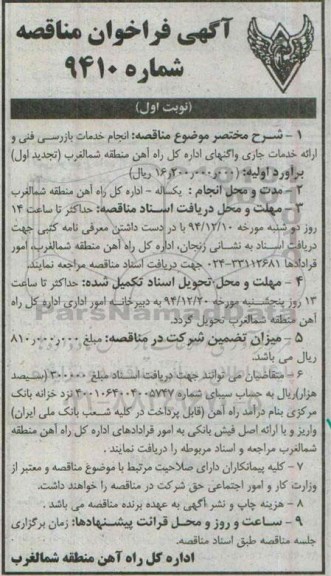 آگهی فراخوان مناقصه
شماره ۹۴۱۰
(نوبت اول)
۱ - شرح مختصر موضوع مناقصه: انجام خدمات بازرسی فنی و
ارائه خدمات جاری واگنهای اداره کل راه آهن منطقه شمالغرب (تجدید اول)
برآورد اولیه: (۱۶٫۲۰۰٫۰۰۰٫۰۰۰ ریال)
۲ - مدت و محل انجام : یکساله - اداره کل راه آهن منطقه شمالغرب
۳ - مهلت و محل دریافت اسناد مناقصه: حداکثر تا ساعت ۱۴
روز دو شنبه مورخه ۹۴/۱۲/۱۰ با در دست داشتن معرفی نامه کتبی جهت
دریافت اسناد به نشانی زنجان، اداره کل راه آهن منطقه شمالغرب، امور
قراردادها ۳۳۱۱۲۶۸۱-۰۲۴ جهت دریافت اسناد مناقصه مراجعه نمایند.
۴ - مهلت و محل تحویل اسناد تکمیل شده: حداکثر تا ساعت
۱۳ روز پنجشنبه مورخه ۹۴/۱۲/۲۰ به دبیرخانه امور اداری اداره کل راه
آهن منطقه شمالغرب تحویل گردد.
۵ - میزان تضمین شرکت در مناقصه: مبلغ ۸۱۰٫۰۰۰٫۰۰۰
ریال می باشد.
۶ - متقاضیان می توانند جهت دریافت اسناد مبلغ ۳۰۰٫۰۰۰ (سیصد
هزار) ریال به حساب سیبای شماره نزد خزانه بانک
مرکزی بنام درآمد راه آهن (قابل پرداخت در کلیه شعب بانک ملی ایران)
واریز و با ارائه اصل فیش بانکی به امور قراردادهای اداره کل راه آهن منطقه
شمالغرب مراجعه و اسناد مربوطه را دریافت نمایند .
۷ - کلیه پیمانکاران دارای صلاحیت مرتبط با موضوع مناقصه و معتبر از
وزارت کار و امور اجتماعی حق شرکت در مناقصه را خواهند داشت.
۸ - هزینه چاپ و نشر آگهی به عهده برنده مناقصه می باشد .
۹ - ساعت و روز و محل قرائت پیشنهادها: زمان برگزاری
جلسه مناقصه طبق اسناد مناقصه.
اداره کل راه آهن منطقه شمالغرب
ParsNamadData